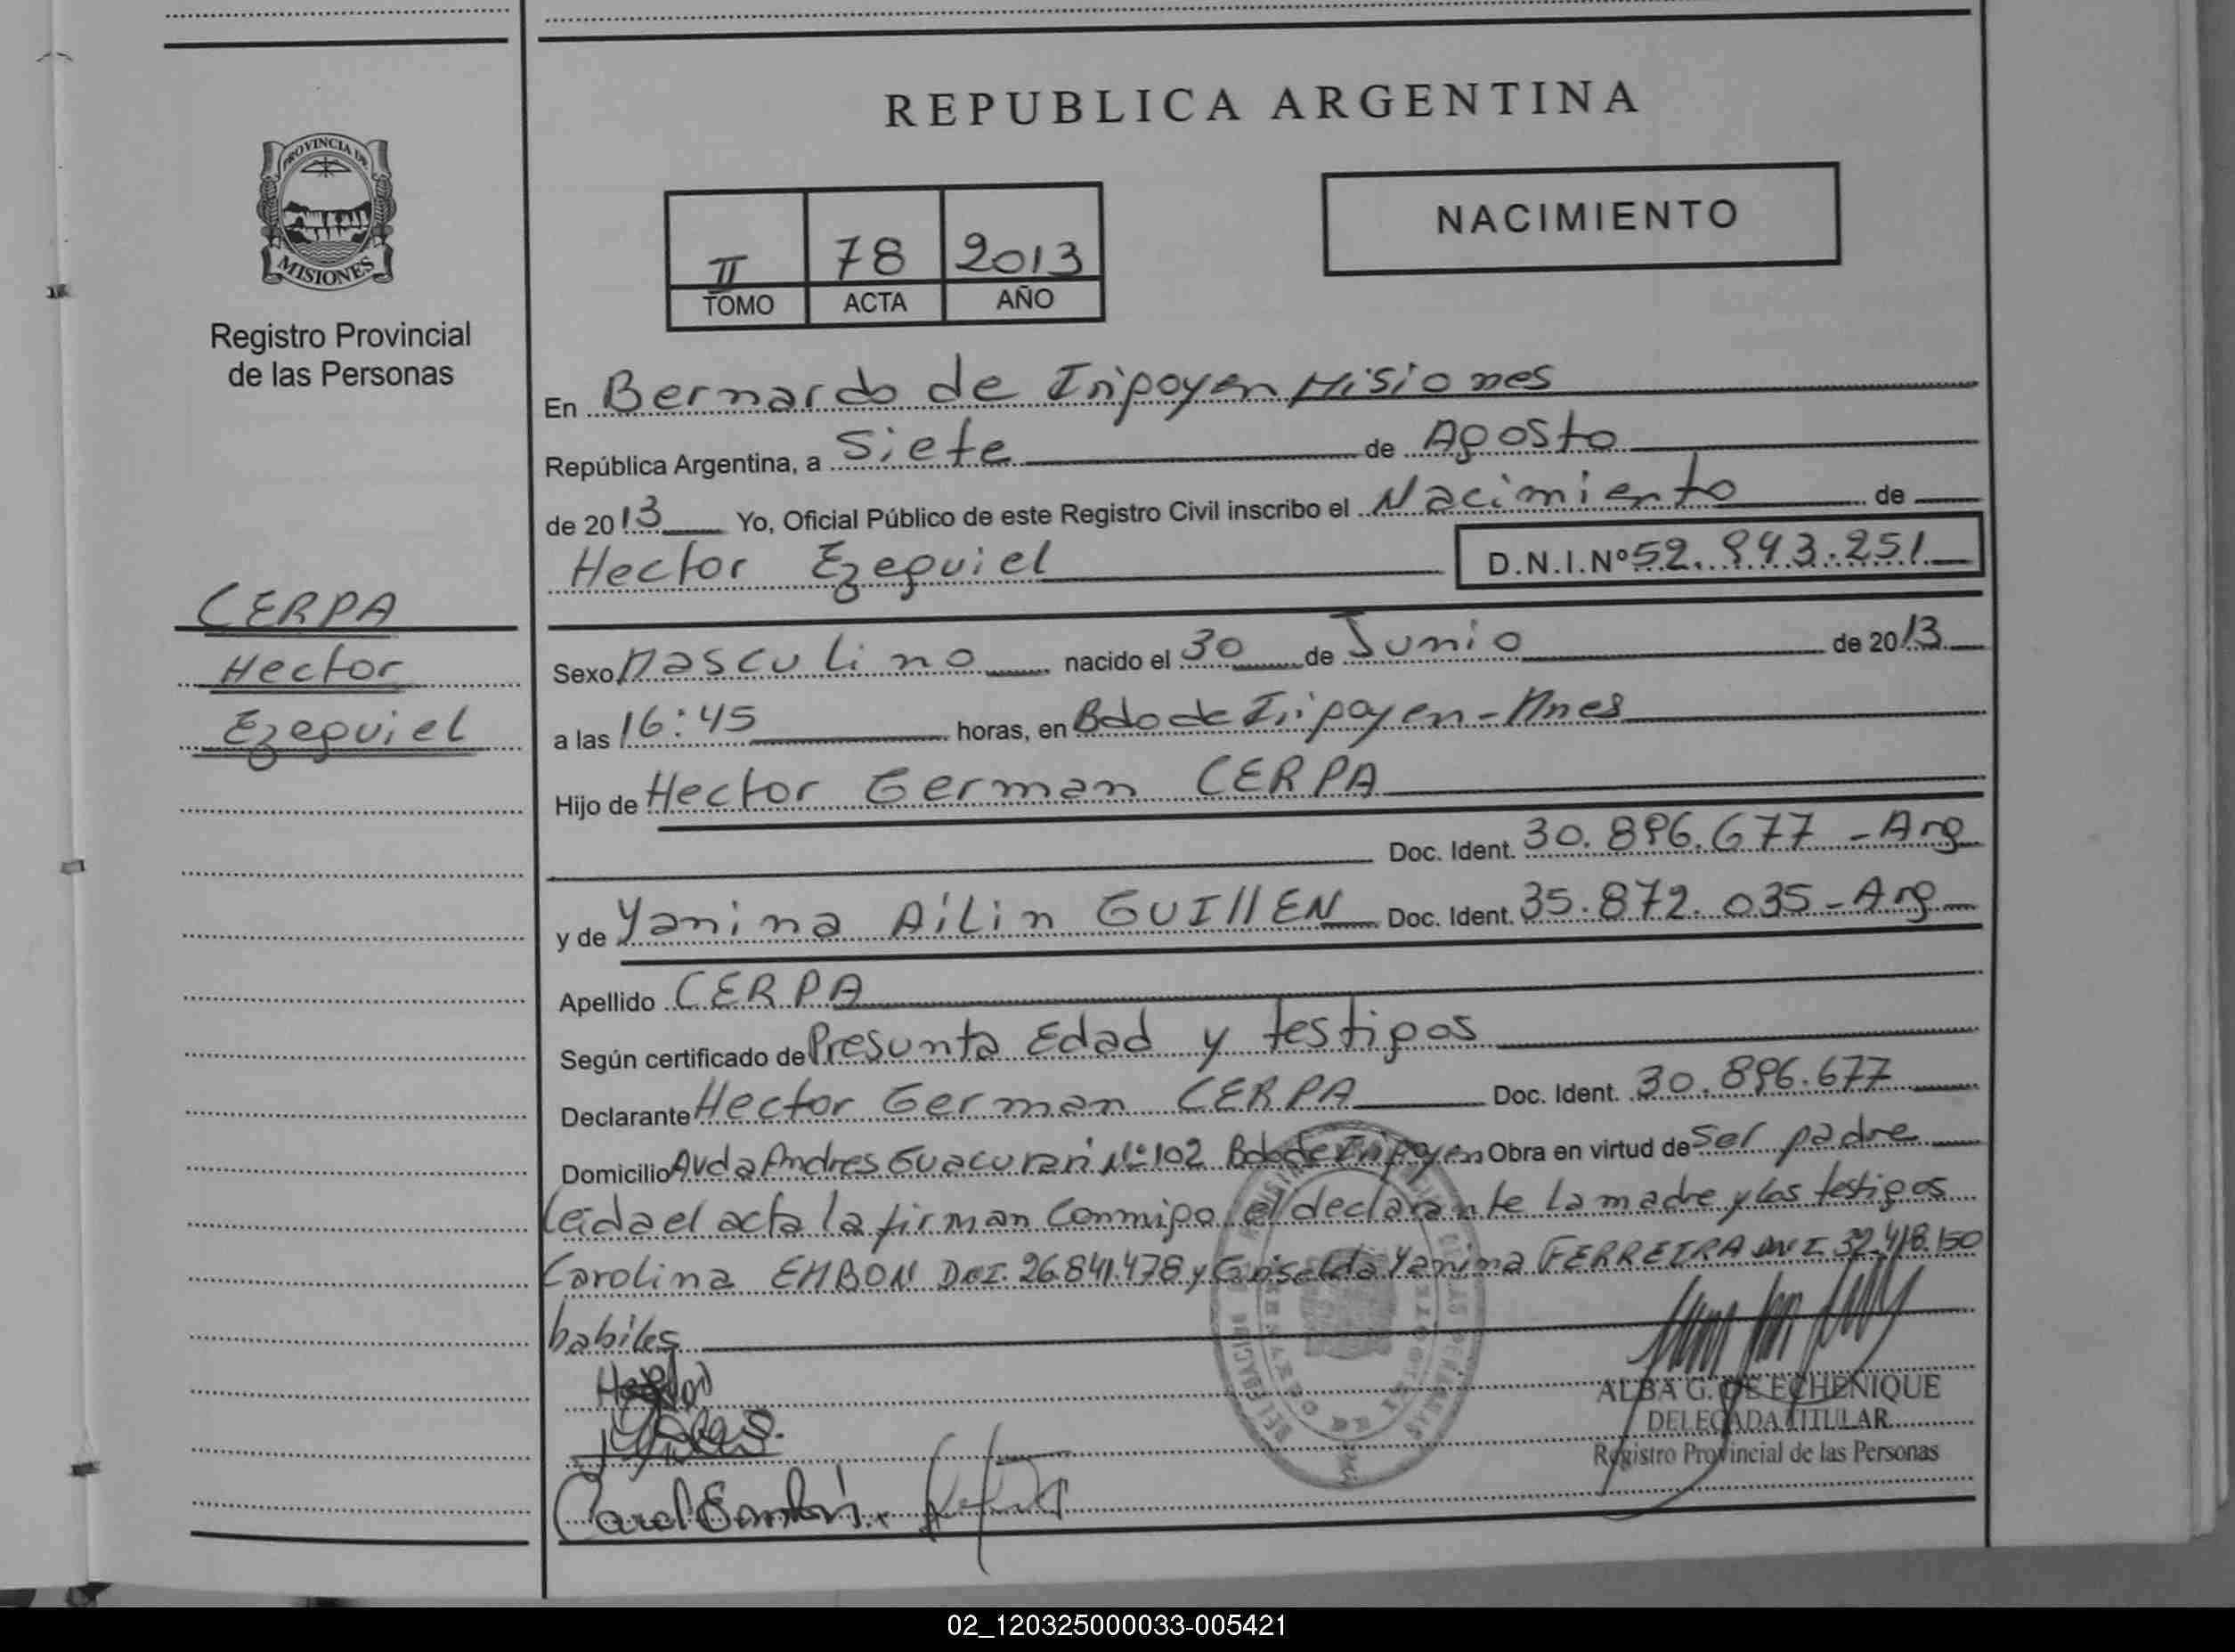 REPUBLICA ARGENTINA
PROVINCIA DE
MISIONES
Registro Provincial
de las Personas
NACIMIENTO
II 78 2013
TOMO ACTA AÑO
En Bernardo de Irigoyen Misiones
República Argentina, a Siete de Agosto
de 2013 Yo, Oficial Público de este Registro Civil inscribo el Nacimiento de
Hector Ezequiel D.N.I.Nº 52.943.251
CERPA
Hector
Ezequiel
Sexo Masculino nacido el 30 de Junio de 2013
a las 16:45 horas, en Bdo de Irigoyen - Mnes
Hijo de Hector German CERPA
Doc. Ident. 30.896.677 - Arg
y de Yanina Ailin GUIllEN Doc. Ident. 35.872.035 - Arg
Apellido CERPA
Según certificado de Presunta Edad y testigos
Declarante Hector German CERPA Doc. Ident. 30.896.677
Domicilio Avda Andres Guacurari Nº 102 Bdo de Irigoyen Obra en virtud de ser padre
Leida el acta la firman Conmigo el declarante la madre y los testigos
Carolina EMBON DNI. 26.841.478 y Griselda Yanina FERREIRA DNI 32.418.150
habiles
ALBA G. DE ECHENIQUE
DELEGADA TITULAR
Registro Provincial de las Personas
02_120325000033-005421